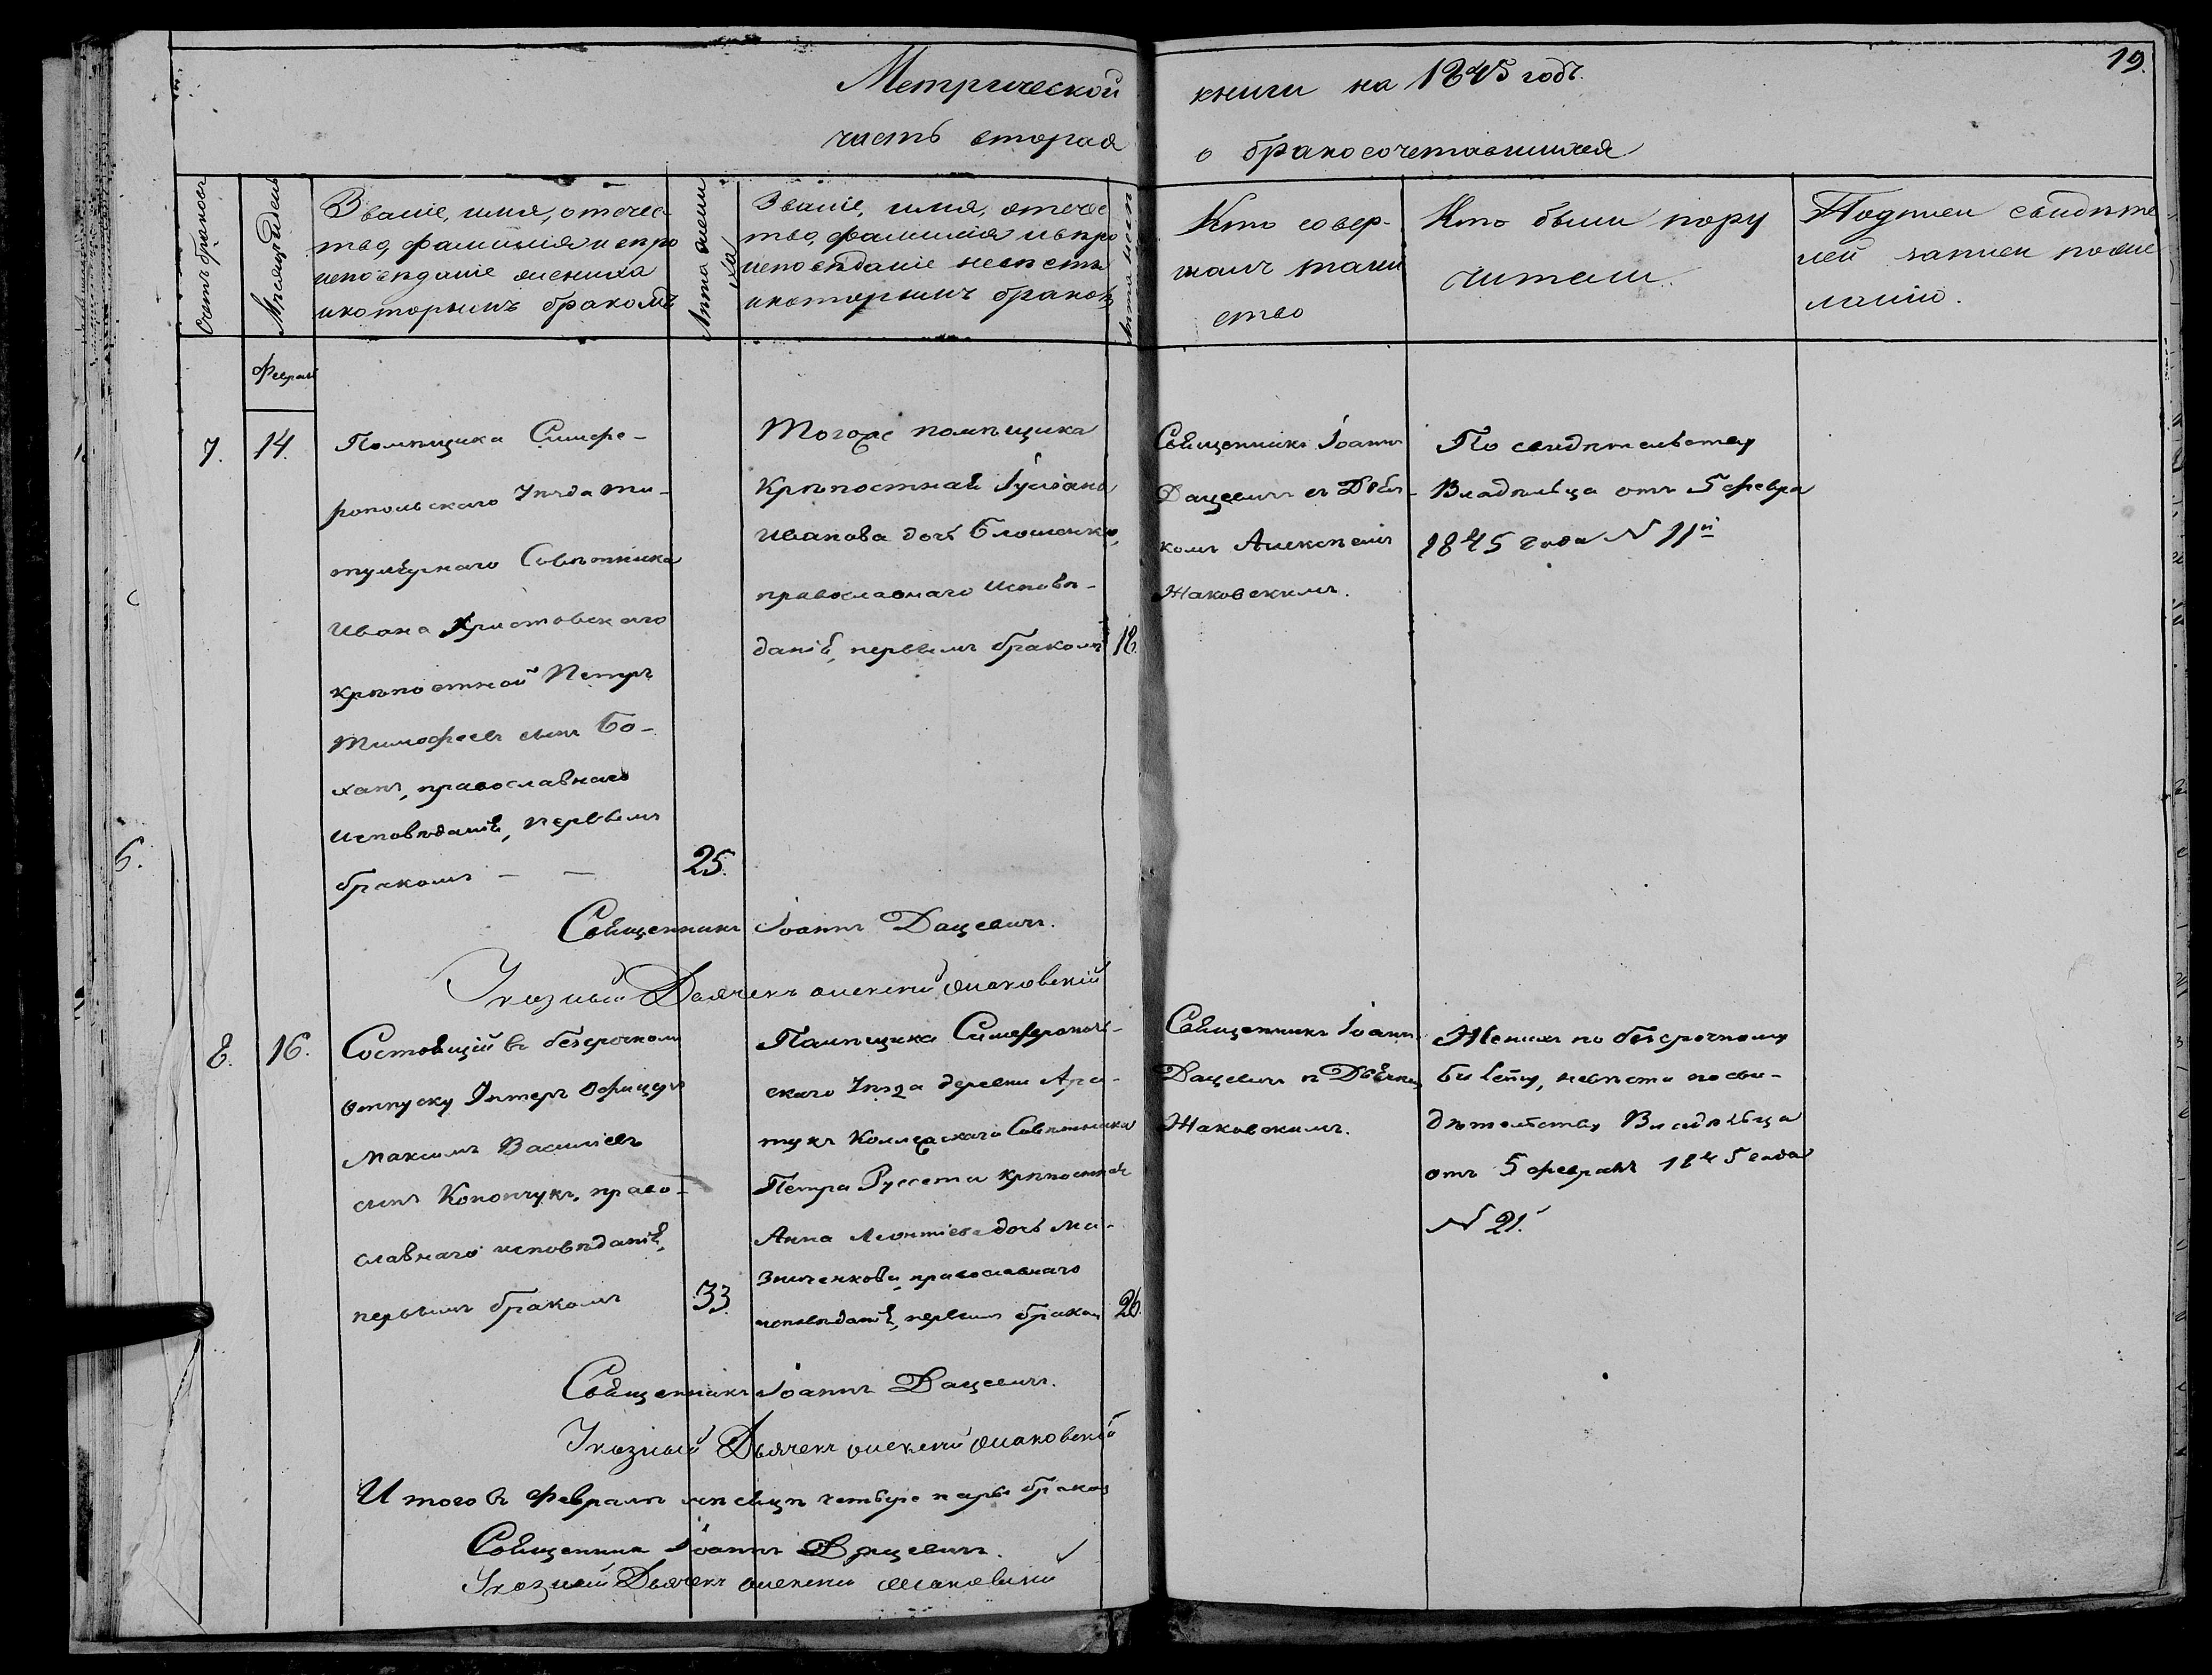 Метрической книги на 1845 годъ.
19.
часть вторая о бракосочетавшихся
Счетъ браковъ
Мѣсяцъ и день
Званіе, имя, отечес-
тво, фамилія и вѣро
исповѣданіе жениха
и которымъ бракомъ
Лѣта жени
ха
Званіе, имя, отечес
тво, фамилія и вѣро
исповѣданіе невѣсты
и которымъ бракомъ
Лѣта невѣс
Кто совер-
шалъ таин
ство
Кто были пору
чители.
Подписи свидѣте
лей записи по же
ланію.
Февраль
7.
14.
Помѣщика Симфе-
ропольскаго Уѣзда Ти-
тулярнаго Совѣтника
Ивана Христовскаго
крѣпостной Петръ
Тимофеевъ сынъ Бо-
ханъ, православнаго
исповѣданія, первымъ
бракомъ — —
25.
Тогоже помѣщика
крѣпостная Іуліана
Иванова дочь Блошенко,
православнаго исповѣ-
данія, первымъ бракомъ
18.
Священникъ Іоаннъ
Дацевичъ съ Дьяч-
комъ Алексѣемъ
Жаковскимъ.
По свидѣтельству
Владѣльца отъ 5 февра
1845 года N 11й
Священникъ Іоаннъ Дацевичъ.
Указный Дьячекъ Алексей Жаковскій
8.
16.
Состоящій въ безсрочномъ
отпуску Унтеръ Офицеръ
Максимъ Василіевъ
сынъ Конончукъ, право-
славнаго исповѣданія,
первымъ бракомъ
33.
Помѣщика Симферополь-
скаго Уѣзда деревни Ара-
тукъ Коллежскаго Совѣтника
Петра Руссети крѣпостная
Анна Леонтіева дочь Ма-
зниченкова, православнаго
исповѣданія, первымъ бракомъ
26.
Священникъ Іоаннъ
Дацевичъ съ Дьячкомъ
Жаковскимъ.
Женихъ по безсрочному
билету, невѣста по сви-
дѣтельству Владѣльца
отъ 5 февраля 1845 года
N 21.
Священникъ Іоаннъ Дацевичъ.
Указный Дьячекъ Алексей Жаковскій
Итого въ Февралѣ мѣсяцѣ четыре пары браковъ
Священникъ Іоаннъ Дацевичъ.
Указный Дьячекъ Алексей Жаковскій
6.